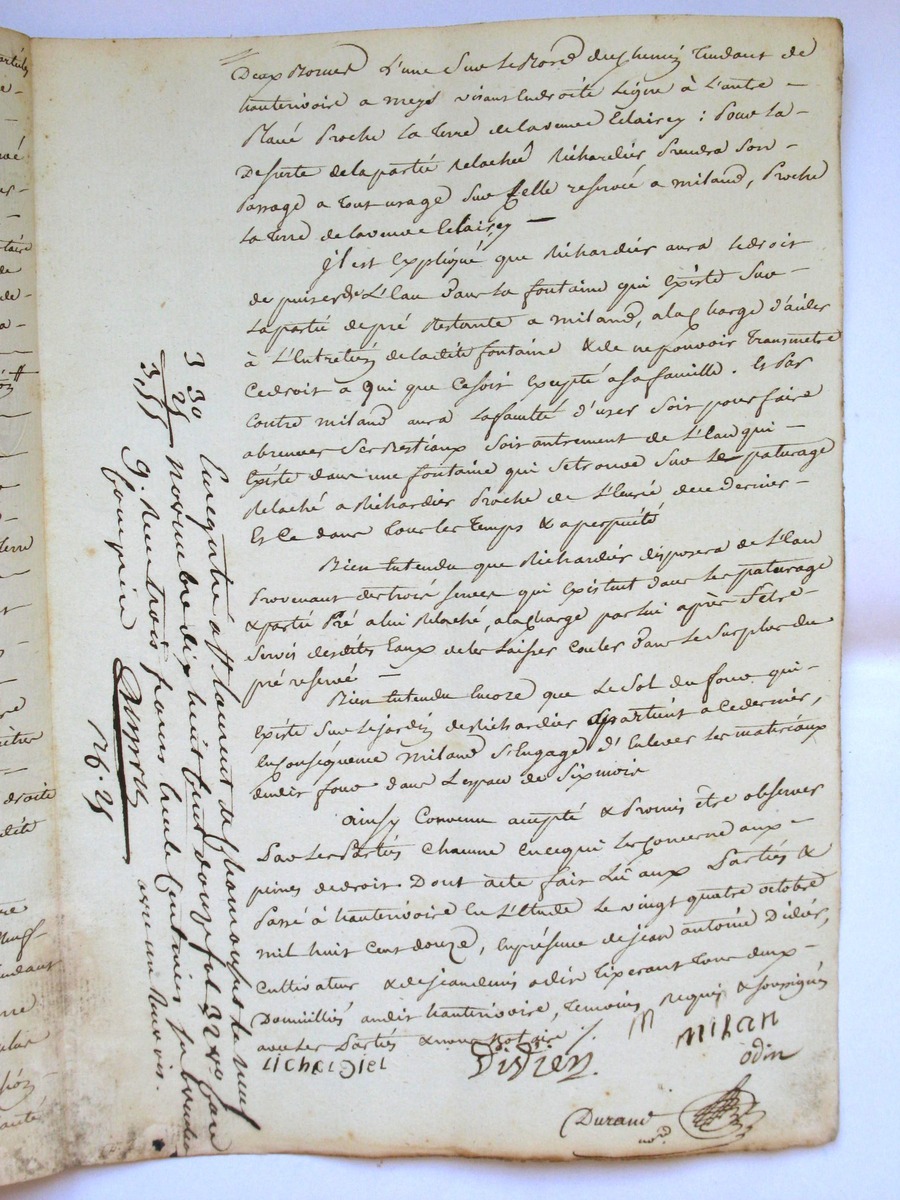 Deux Bornes l'une Sur le Bord du Chemin Tendant de
hauterivoire a meys visant Endroite Ligne à L'autre
Placé Proche La Terre de la veuve Eclairey : Pour La
Desserte de la partié Relachée Richardiér Prendra Son
Passage a tout usage Sur Celle reservée a miland, Proche
La Terre de la veuve Eclairey
Il est Expliqué que Richardiér aura le droit
de puiser de L'Eau Dans La fontaine qui Existe Sur
La partié de pré Restante a miland, a la Charge d'aider
à L'Entretién de la dite fontaine & de ne pouvoir Transmetre
Ce droit a Qui que Ce soit Excepté a Sa famille. Et Par
Contre miland aura La faculté d'user Soit pour faire
abreuver Ses Bestiaux Soit autrement de L'Eau qui
Existe dans une fontaine qui Se trouve Sur Le paturage
Relaché a Richardiér Proche de L'Ecurié de ce dernier
Et Ce dans Tous les Temps & a perpeuité
Bien Entendu que Richardiér disposera de L'Eau
Provenant des trois Serves qui Existent dans les paturage
& partié Pré a lui Relaché, a la Charge par lui après S'etre
Servis desdites Eaux de les Laisser Couler Dans Le Surplus du
pré reservé
Bien Entendu Encore que Le Sol du four qui
Existe Sur Le jardin de Richardiér apartient a Ce dernier,
En Conséquence Miland S'Engage D'Enlever Les matériaux
dudit four dans L'espace de Six mois
Ainsy Convenu accepté & Promis être observer
Par Les Partiés Chacune En ce qui Les Concerne aux
peines de droit Dont acte fait Lû aux Partiés &
Passé à hauterivoire En L'Etude Le vingt quatre octobre
mil huit Cent douze, En présence de jean antoine Didiér,
Cultivateur & de jean denis odin Tixerant Tous deux
Domiciliés audit hauterivoire, Temoins Requis & soussignés
avec Les Partiés & nous Notaire
Richardiel Didier m milan
odin
Durand
no.re
Enregistré a St Laurent de Chamousset le neuf
3 30 novembre dix huit Cent douze fol 32 vo. Case
25 9. Reçu trois francs trente Centimes
3,55
16.25